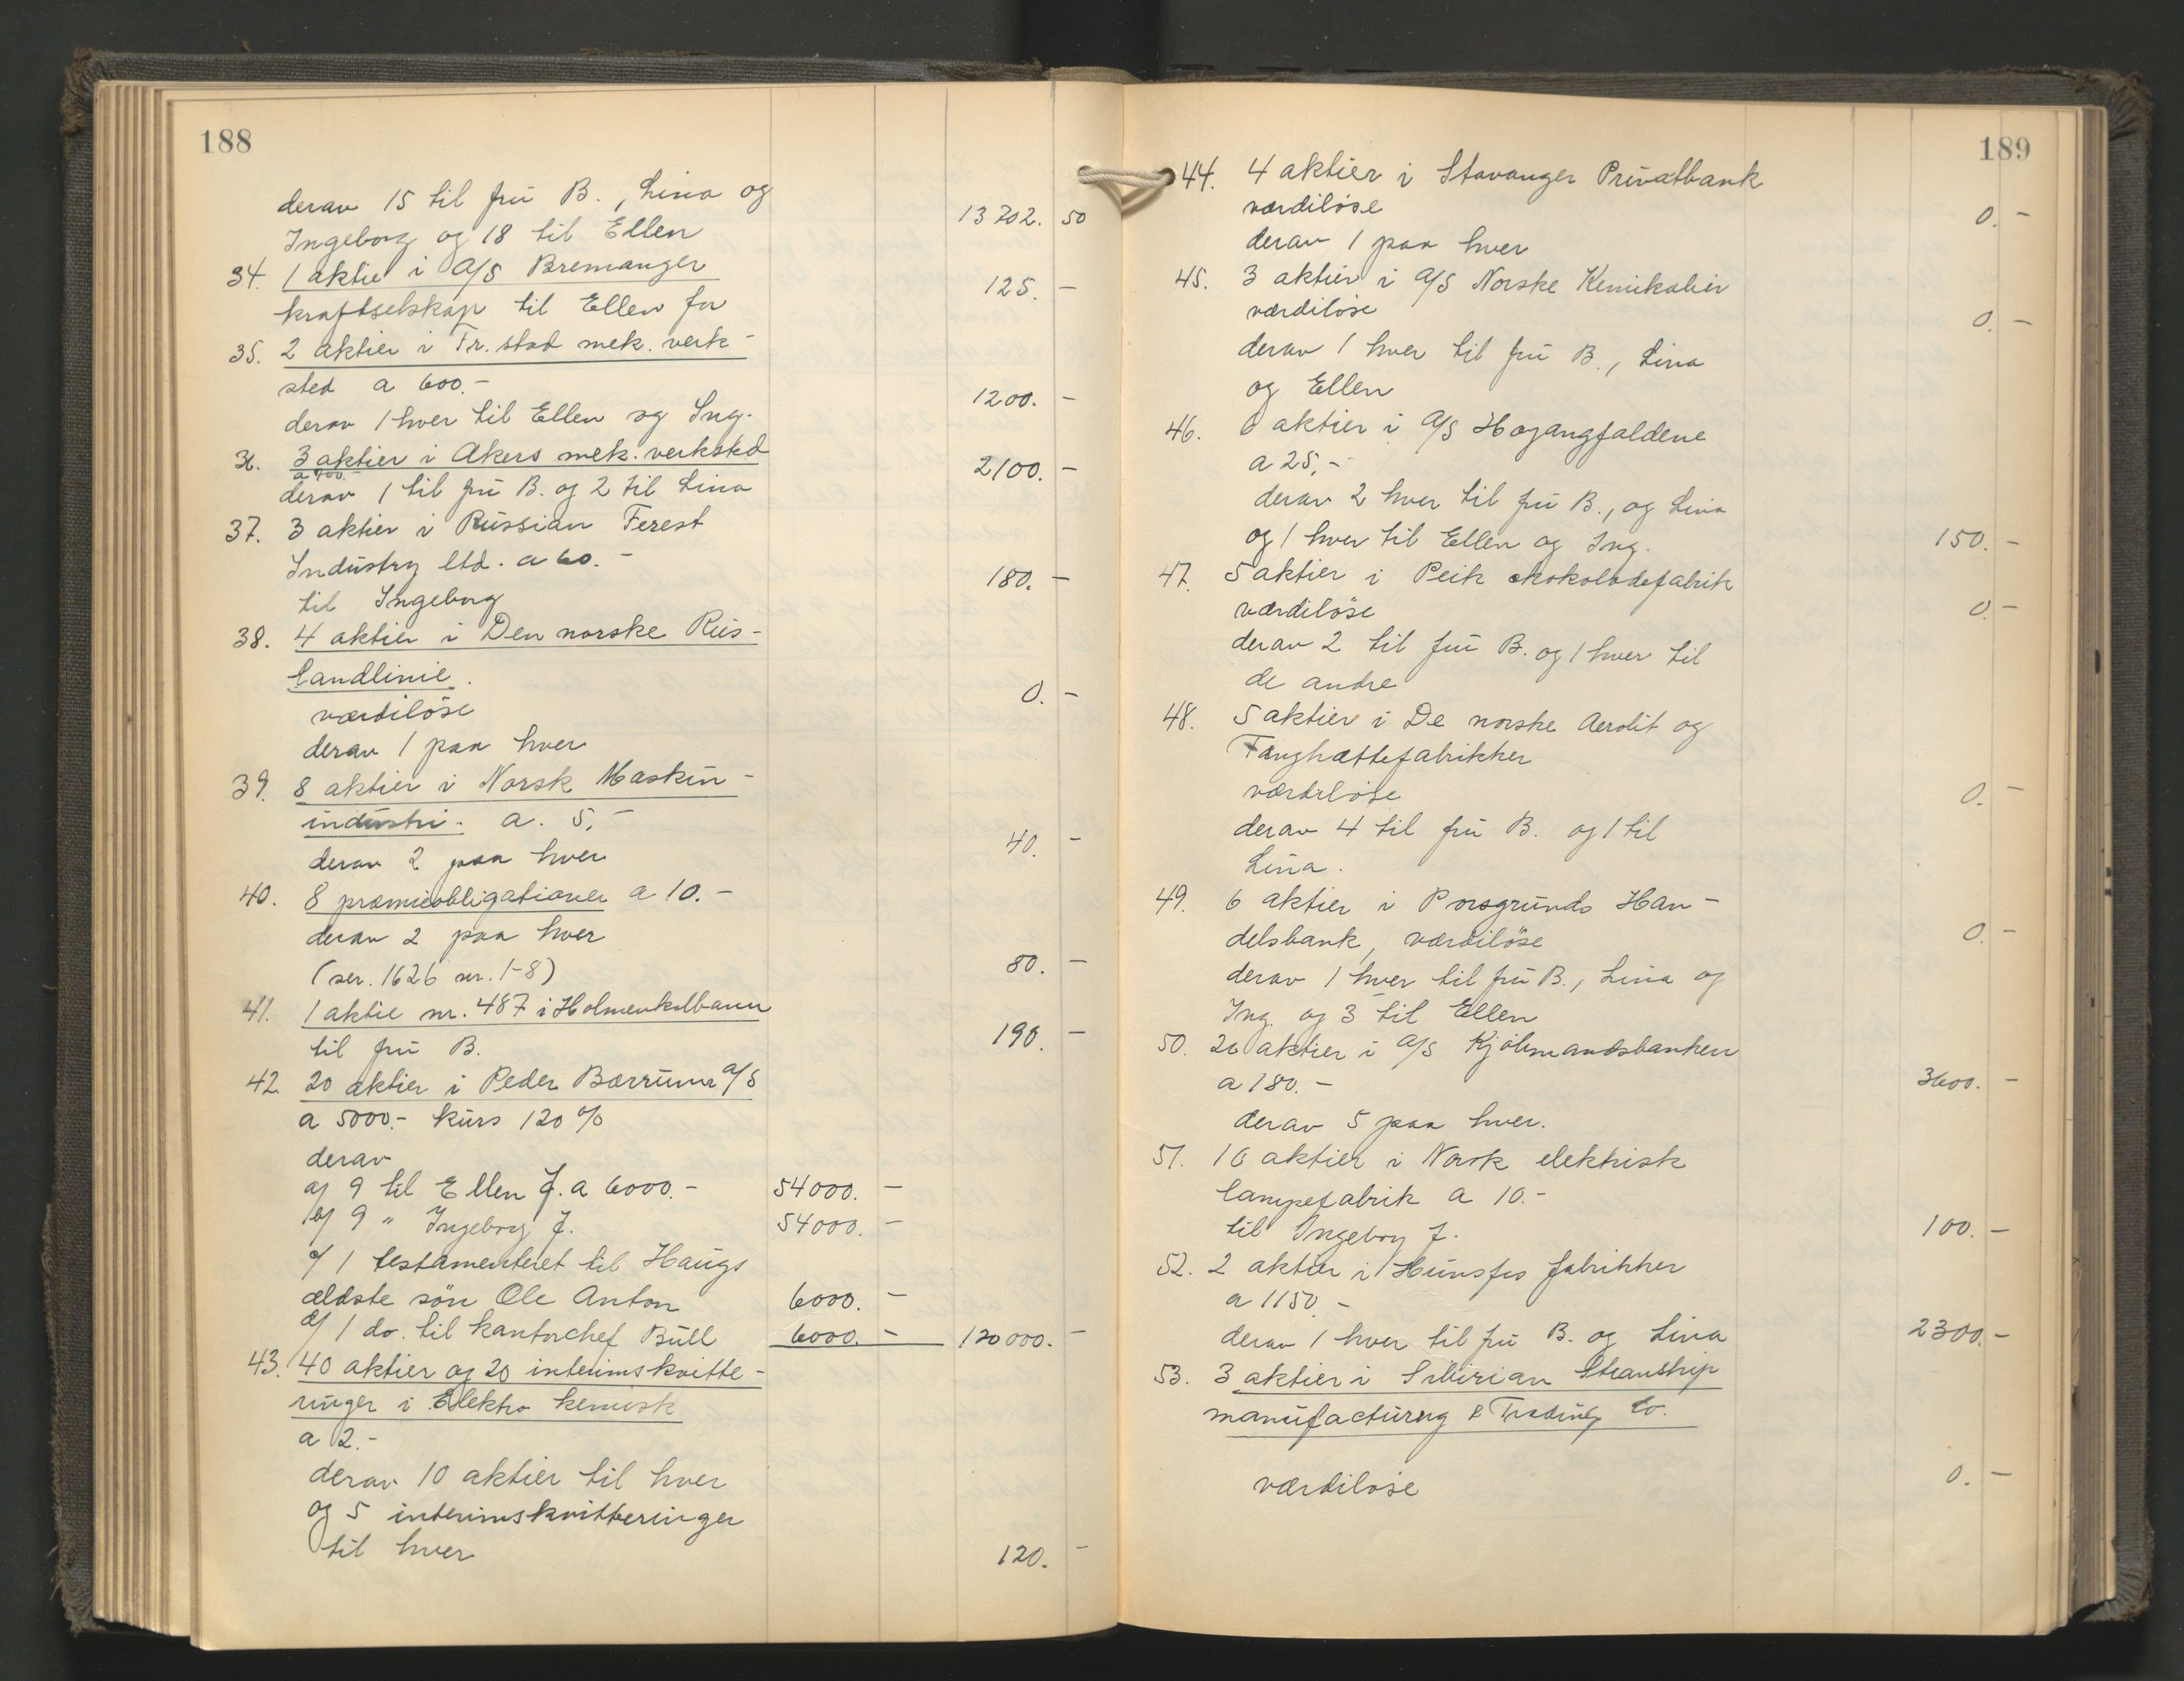 188
derav 15 til frü B., Lina og
Ingeborg og 18 til Ellen 13702. 50
34. 1 aktie i A/S Bremanger
kraftselskap til Ellen for 125. –
35. 2 aktier i Fr.stad mek. verk-
sted a 600.–
derav 1 hver til Ellen og Ing. 1200. –
36. 3 aktier i Akers mek. verksted
a 700.–
derav 1 til frü B. og 2 til Lina 2100. –
37. 3 aktier i Russian Forest
Indüstry ltd. a 60. –
til Ingeborg 180. –
38. 4 aktier i Den norske Rüs-
landlinie.
værdiløse 0. –
derav 1 paa hver
39. 8 aktier i Norsk Maskin-
indüstri. a. 5.–
derav 2 paa hver 40. –
40. 8 præmieobligationer a 10.–
derav 2 paa hver
(ser. 1626 nr. 1-8) 80. –
41. 1 aktie nr. 487 i Holmenkolbanen
til frü B. 190. –
42. 20 aktier i Peder Bærrüm A/S
a 5000.– kürs 120 %
derav
a/ 9 til Ellen J. a 6000.– 54000. –
b/ 9 " Ingeborg J. 54000. –
c/ 1 testamenteret til Haügs
ældste søn Ole Anton 6000. –
d/ 1 do. til kontorchef Büll 6000. – 120000. –
43. 40 aktier og 20 interimskvitte-
ringer i Elektro kemisk
a 2.–
derav 10 aktier til hver
og 5 interimskvitteringer
til hver 120. –
189
44. 4 aktier i Stavanger Privatbank
værdiløse 0. –
derav 1 paa hver
45. 3 aktier i A/S Norske Kemikalier
værdiløse 0. –
derav 1 hver til frü B., Lina
og Ellen
46. 6 aktier i A/S Høgangfaldene
a 25.–
derav 2 hver til frü B., og Lina
og 1 hver til Ellen og Ing. 150. –
47. 5 aktier i Peik chokoladefabrik
værdiløse 0. –
derav 2 til frü B. og 1 hver til
de andre
48. 5 aktier i De norske Aerolit og
Fænghættefabrikker
værdiløse 0. –
derav 4 til frü B. og 1 til
Lina.
49. 6 aktier i Porsgründs Han-
delsbank, værdiløse 0. –
derav 1 hver til frü B., Lina og
Ing. og 3 til Ellen
50. 20 aktier i A/S Kjøbmandsbanken
a 180.– 3600. –
derav 5 paa hver.
51. 10 aktier i Norsk elektrisk
lampefabrik a 10.–
til Ingeborg J. 100. –
52. 2 aktier i Hünsfos fabrikker
a 1150 –
derav 1 hver til frü B. og Lina 2300. –
53. 3 aktier i Sibirian Steamship
manüfactüring & Trading Co.
værdiløse 0. –